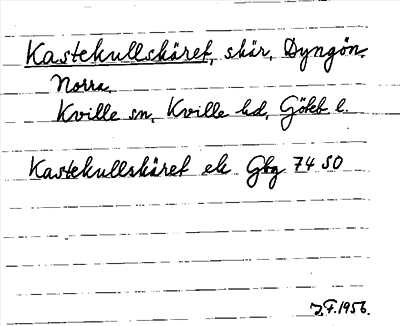 Kastekullskäret, skär, Dyngön.
Norra.
Kville sn, Kville hd, Göteb l.
Kastekullskäret ek Gbg 74 SO
J.F. 1956.